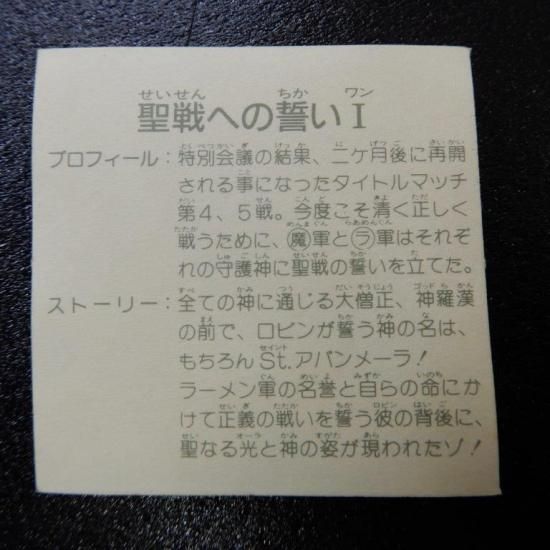 聖戦への誓いⅠ
プロフィール：特別会議の結果、二ケ月後に再開
される事になったタイトルマッチ
第４、５戦。今度こそ清く正しく
戦うために、魔軍とラ軍はそれぞ
れの守護神に聖戦の誓いを立てた。
ストーリー：全ての神に通じる大僧正、神羅漢
の前で、ロビンが誓う神の名は、
もちろんSt.アバンメーラ！
ラーメン軍の名誉と自らの命にか
けて正義の戦いを誓う彼の背後に、
聖なる光と神の姿が現われたゾ！